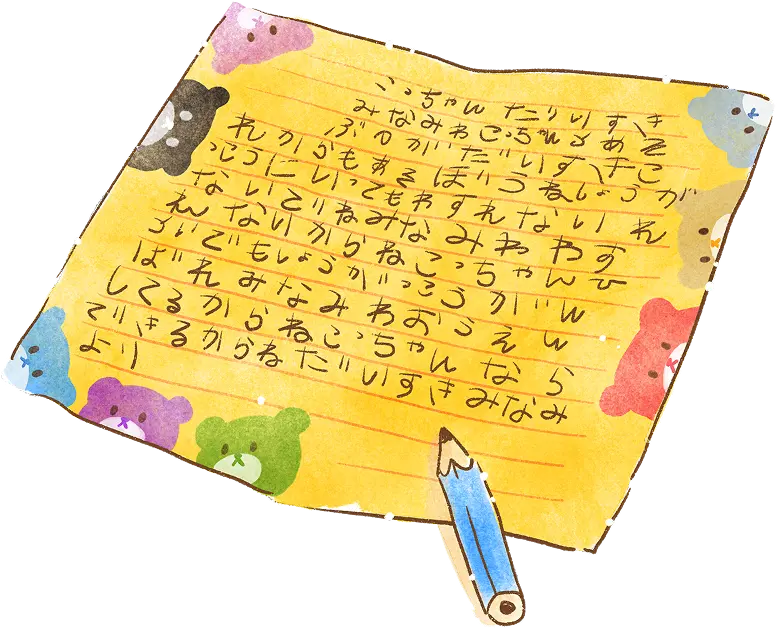 こっちゃん だいすき
みなみわこっちゃんとあそ
ぶのがだいすきこ
れからもあそぼうねしょうが
っこうにいってもわすれないれ
ないでねみなみわわす
れないからねこっちゃんひ
とりでもしょうがっこうがん
ばれみなみわおうえん
してるからねこっちゃんなら
できるからねだいすきみなみ
より